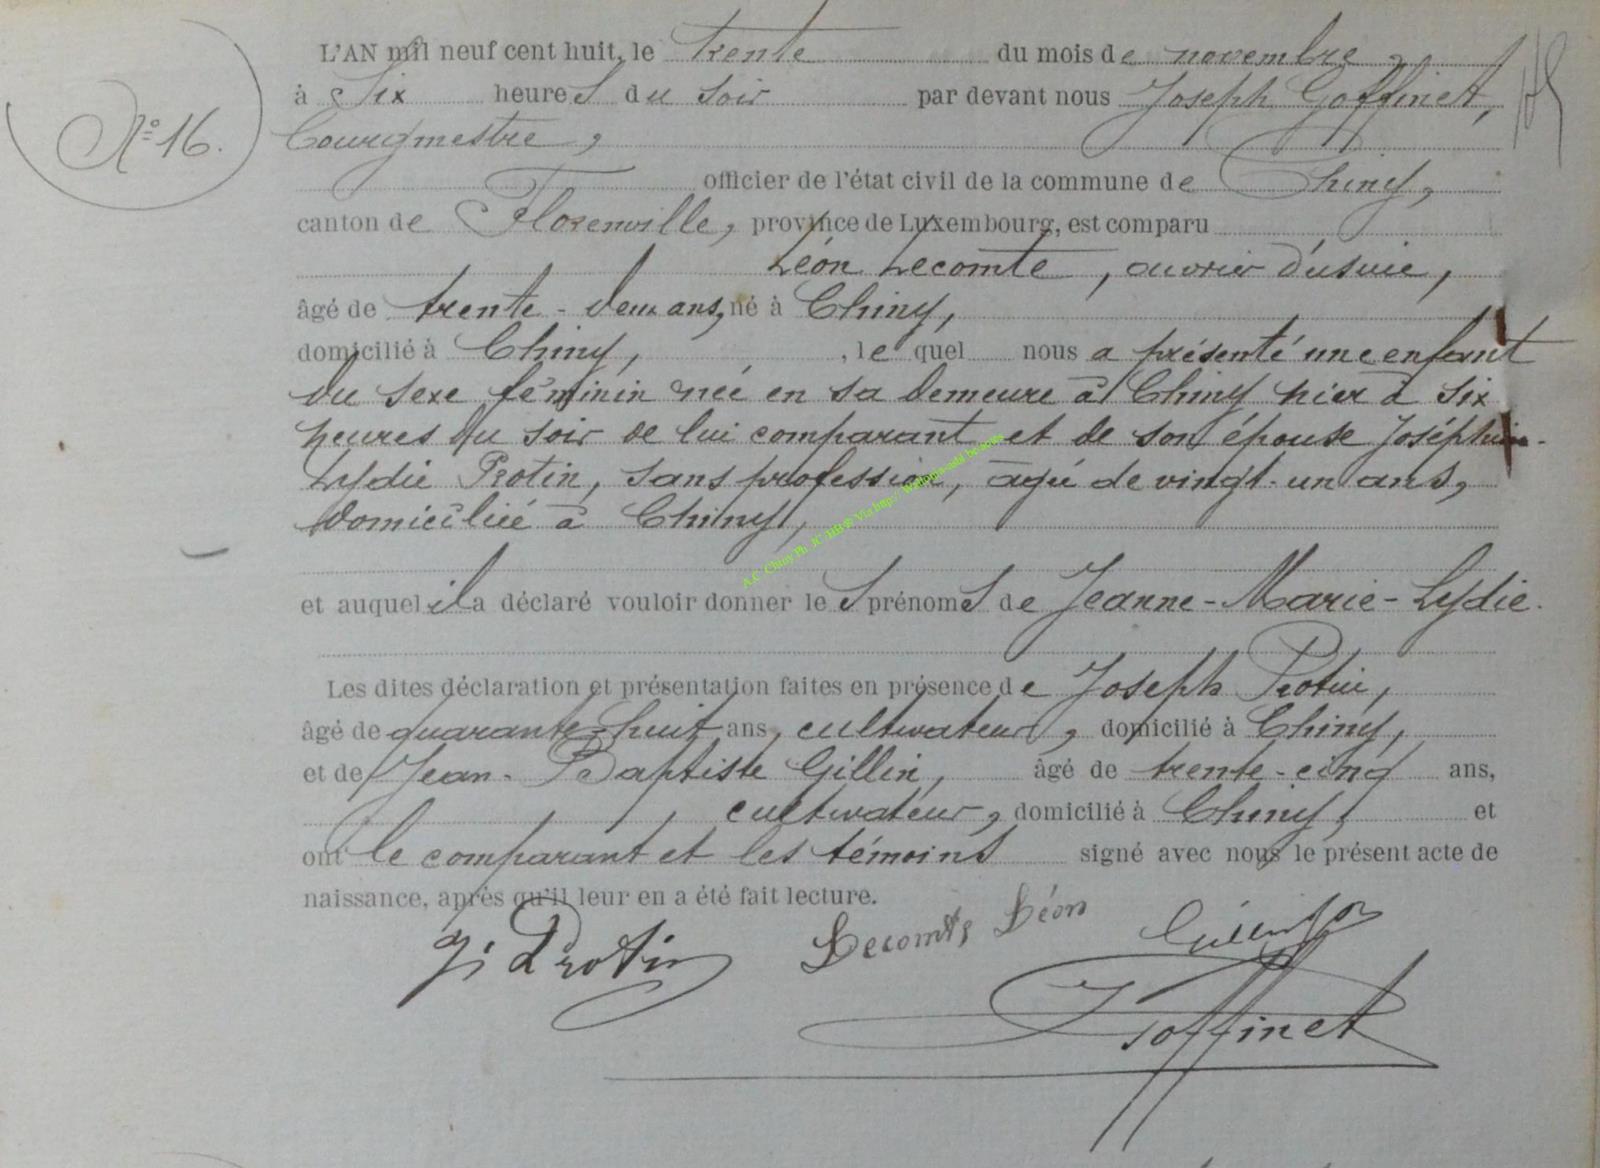 N° 16.
L'AN mil neuf cent huit, le trente du mois de novembre,
à Six heures du soir par devant nous Joseph Goffinet,
bourgmestre,
officier de l'état civil de la commune de Chiny,
canton de Florenville, province de Luxembourg, est comparu
Léon Lecomte, ouvrier d'usine,
âgé de trente-deux ans, né à Chiny,
domicilié à Chiny, , le quel nous a présenté une enfant
du sexe féminin née en sa demeure à Chiny hier à six
heures du soir de lui comparant et de son épouse Joséphine-
Lydie Protin, sans profession, agée de vingt-un ans,
domiciliée à Chiny,
A.C Chiny Ph. JC HB ® Via http://
et auquel il a déclaré vouloir donner les prénoms de Jeanne-Marie-Lydie.
Les dites déclaration et présentation faites en présence de Joseph Protin,
âgé de quarante-huit ans, cultivateur, domicilié à Chiny,
et de Jean-Baptiste Gillin, âgé de trente-cinq ans,
cultivateur, domicilié à Chiny, et
ont le comparant et les témoins signé avec nous le présent acte de
naissance, après qu'il leur en a été fait lecture.
J. Protin Lecomte Léon
Goffinet